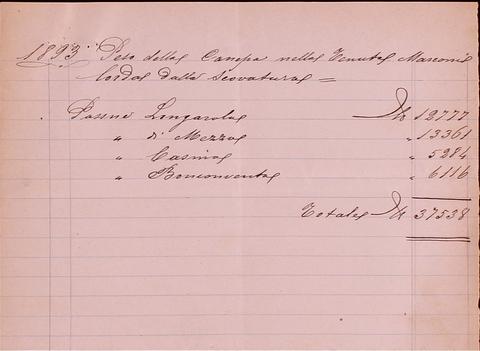 1893. Peso della Canepa nella Tenuta Marconi
lorda dalla Scovatura =
Possne Longarola K 12777
" di Mezzo " 13361
" Casino " 5284
" Bonconvento " 6116
Totale K 37538